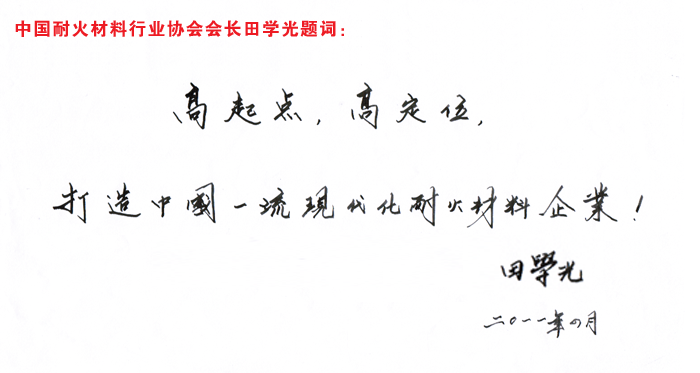 中国耐火材料行业协会会长田学光题词：
高起点，高定位，
打造中國一流现代化耐火材料企業！
田學光
二〇一一年四月